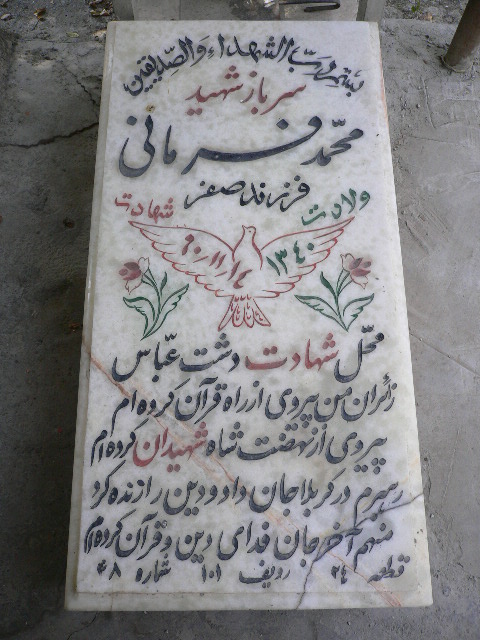 بسم رب الشهداء والصدیقین
سرباز شهید
محمد فرمانی
فرزند صفر
ولادت شهادت
۱۳۴۰ ۶۰،۱۱،۱۴
محل شهادت دشت عباس
زائران من پیروی از راه قرآن کرده ام
پیروی از نهضت شاه شهیدان کرده ام
رهبرم در کربلا جان داد و دین را زنده کرد
منهم آخر جان فدای دین و قرآن کرده ام
قطعه ۲۴ ردیف ۱۰۱ شماره ۴۸